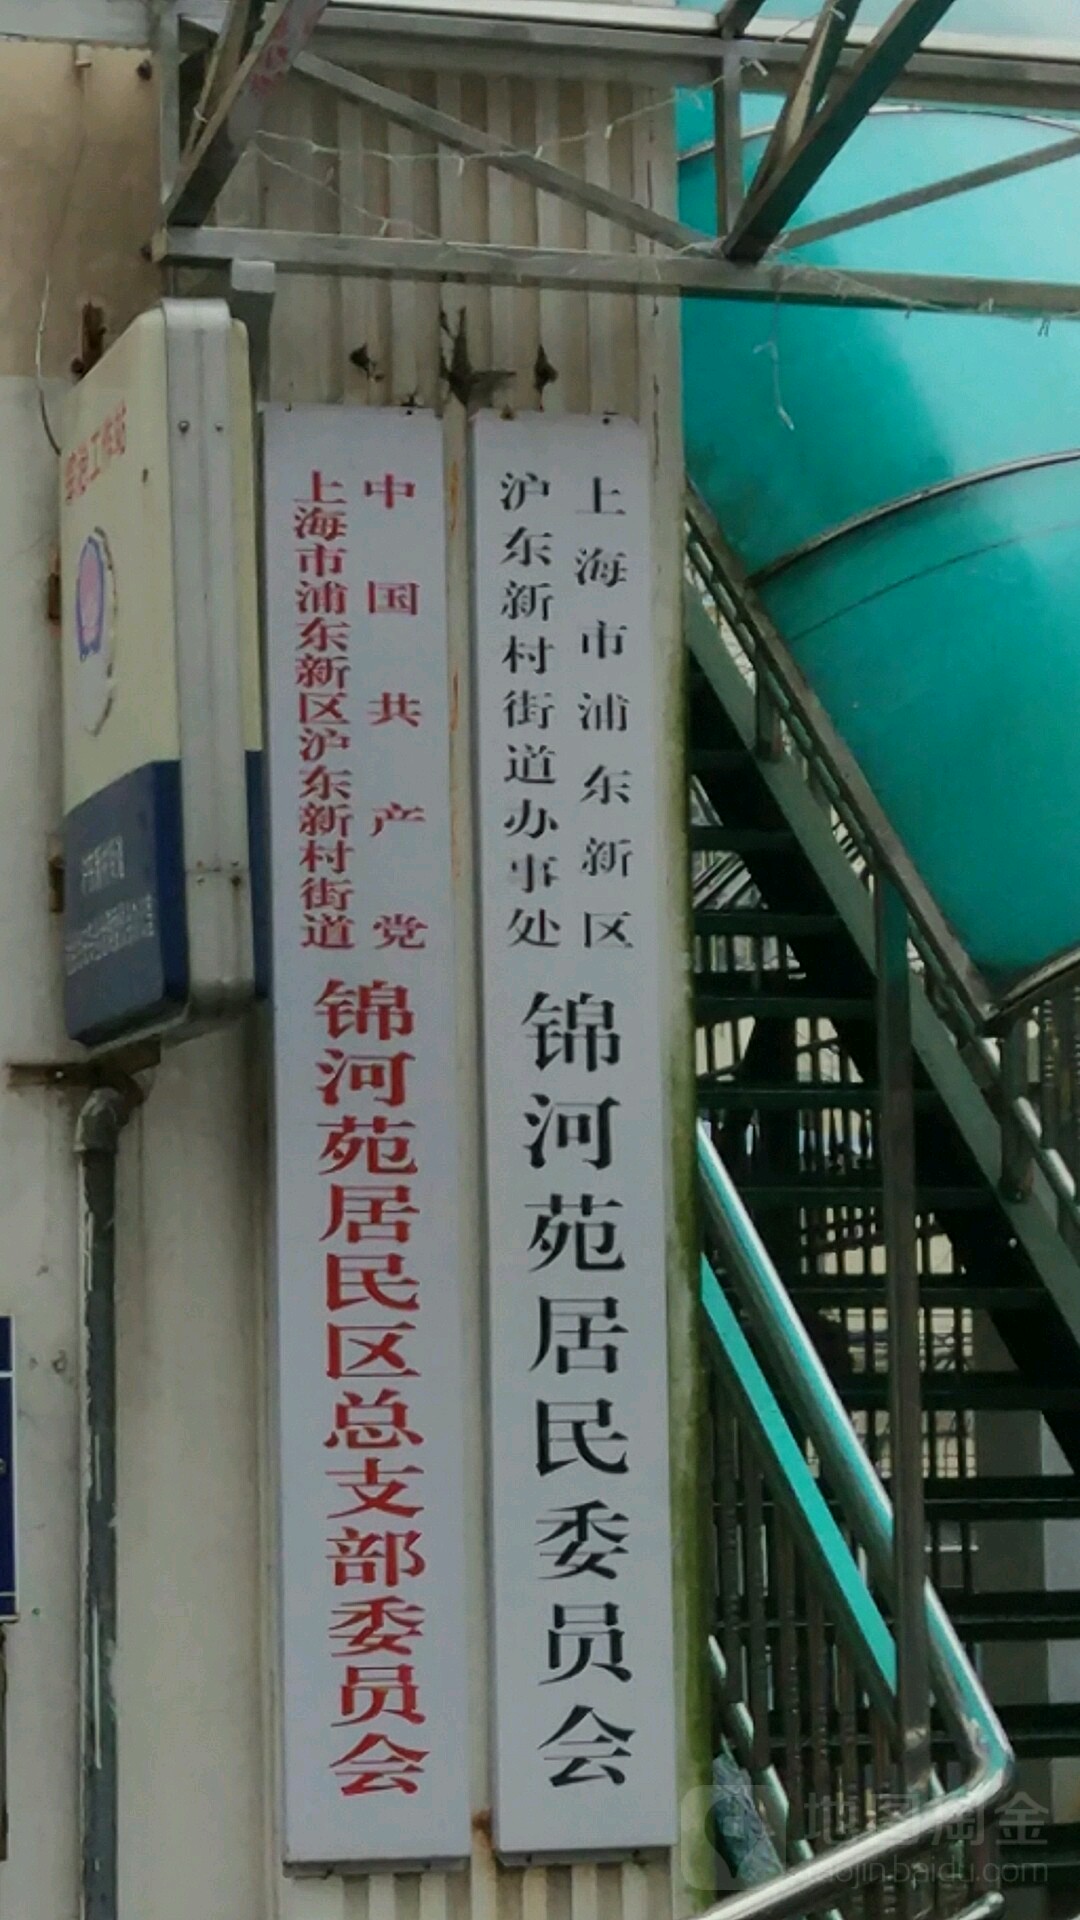 中国共产党
上海市浦东新区沪东新村街道
锦河苑居民区总支部委员会
上海市浦东新区
沪东新村街道办事处
锦河苑居民委员会
工作站
地图淘金
taojin.baidu.com